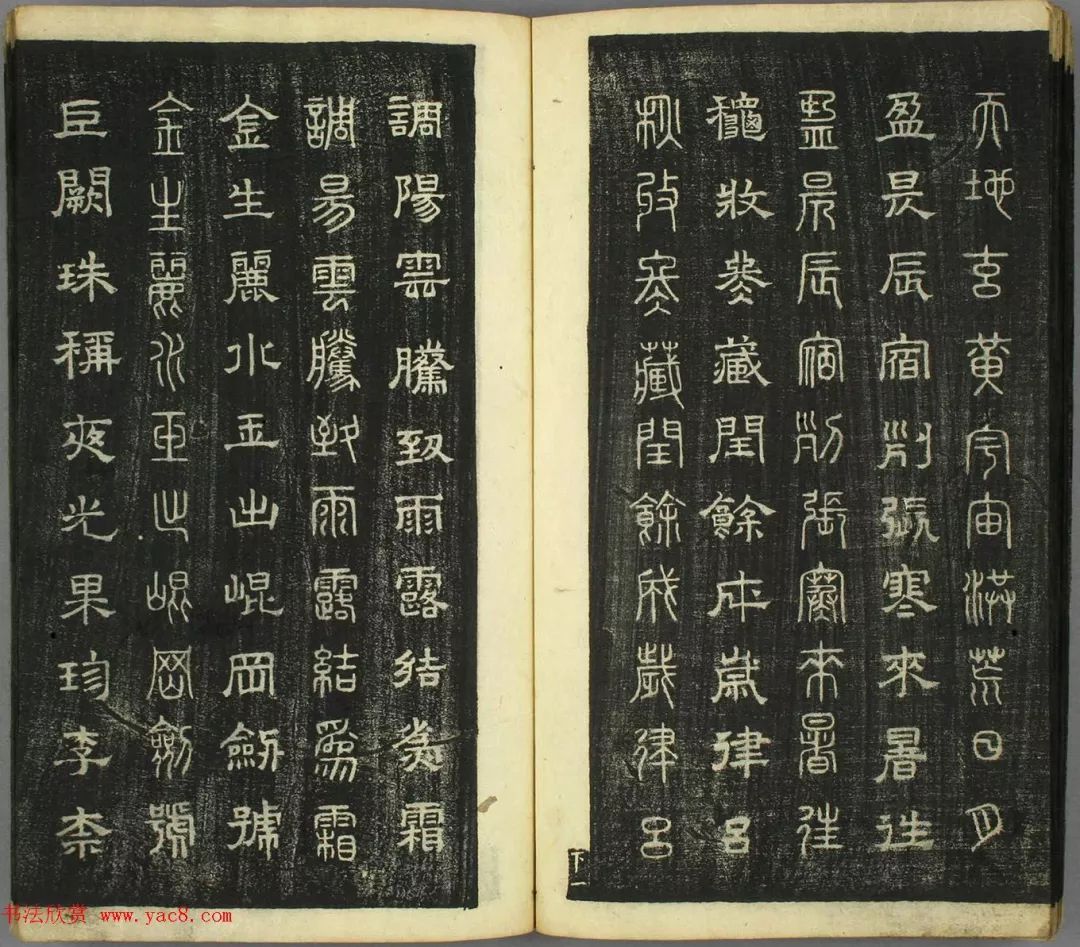 天地玄黃宇宙洪荒日月
盈昃辰宿列張寒來暑往
盈昃辰宿列張寒來暑往
龝收冬藏閏餘成歲律呂
秋收冬藏閏餘成歲律呂
下一
調陽雲騰致雨露結爲霜
調昜雲騰致雨露結爲霜
金生麗水玉出崐岡劒號
金生麗水玉出崐岡劒號
巨闕珠稱夜光果珍李柰
书法欣赏 www.yac8.com